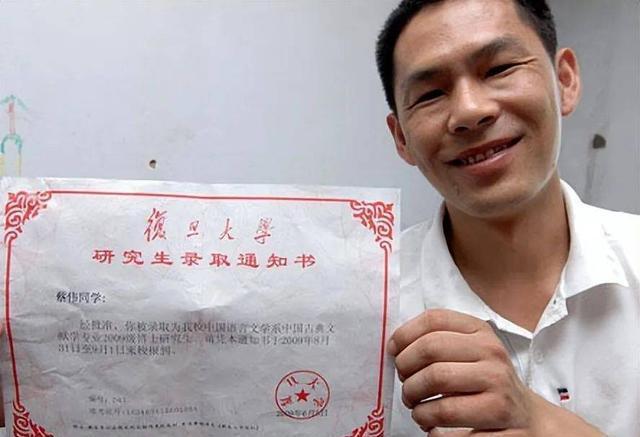 復旦大學
研究生录取通知书
蔡伟同学:
经批准,你被录取为我校中国语言文学系中国古典文
献学专业2009级博士研究生。请凭本通知书于2009年8月
31日至9月1日来校报到。
复旦大学
2009年6月